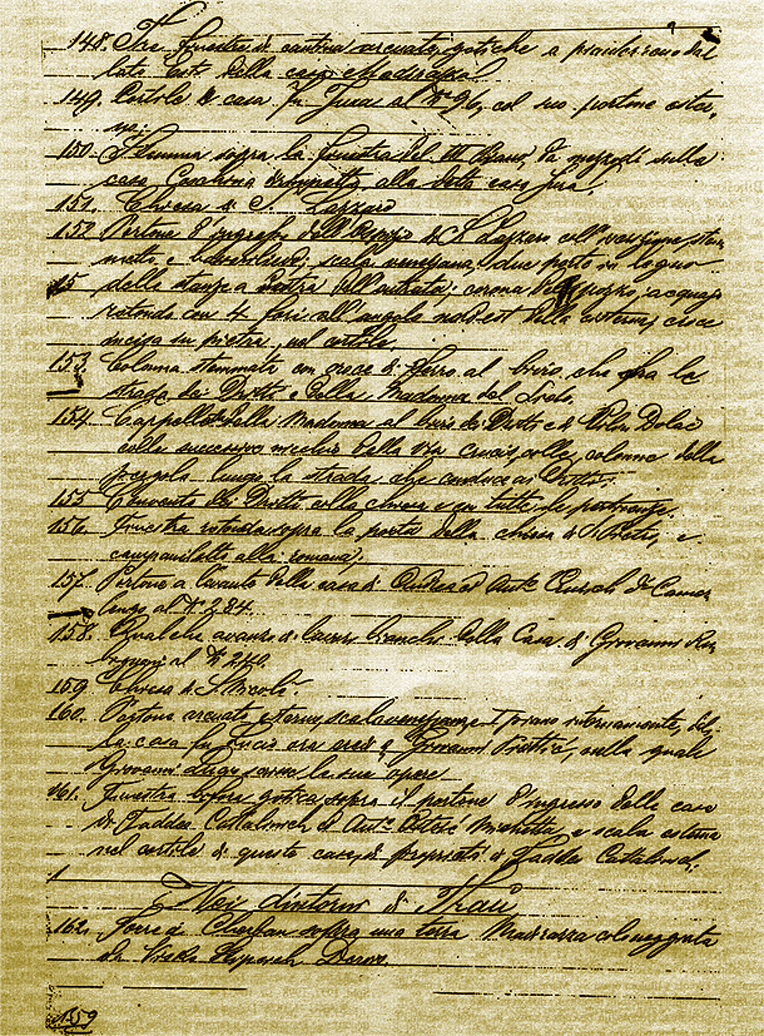 148. Tre finestre di cantina arcuate, gotiche a pianterreno dal
lato Est della casa Madirazza
149. Cortile di casa fu Jura al N. 96, col suo portone ester.
150. Stemma sopra la finestra del III piano, da mezzodì sulla
casa dirimpetto alla detta casa Jura.
151. Chiesa di S. Lazzaro
152 Portone d'ingresso dell'Ospizio di S. Lazzaro coll'iscrizione, stem
matto e bassorilievo; scala veneziana, due porte in legno
15 delle stanze a destra dell'entrata; corona del pozzo; acquajo
rotondo con 4 fori all'angolo nord-est della cisterna; croce
incisa su pietra, nel cortile.
153. Colonna stemmata con croce di ferro al bivio che fra la
strada dei Dritti e della Madonna del
154 Cappella della Madonna al bivio dei Dritti e di Dolac
colle successive nicchie della via Crucis, colle colonne della
pergola lungo la strada che conduce ai Dritti.
155 Convento dei Dritti colla chiesa e con tutte le
156. Finestra rotonda sopra la porta della chiesa di S. Pietro, e
campaniletto alla romana;
157. Portone a levante della casa di Andrea d Ant.
lengo al N. 284.
158. Qualche avanzo di lavori bianchi della Casa di Giovanni
al N. 240.
159 Chiesa di S. Nicolò.
160. Portone arcuato esterno, scala veneziana internamente, del-
la casa fu Lucio ora eredi q Giovanni nella quale
Giovanni Lucio scrisse le sue opere
161. Finestra bifora gotica sopra il portone d'ingresso della casa
di Taddeo Cattalinich d Ant. Michetta, e scala esterna
nel cortile di questa casa, di proprietà di Taddeo Cattalinich;
Nei dintorni di Traù
162. Torre di sopra una terra Madirazza coloneggiata
da
159